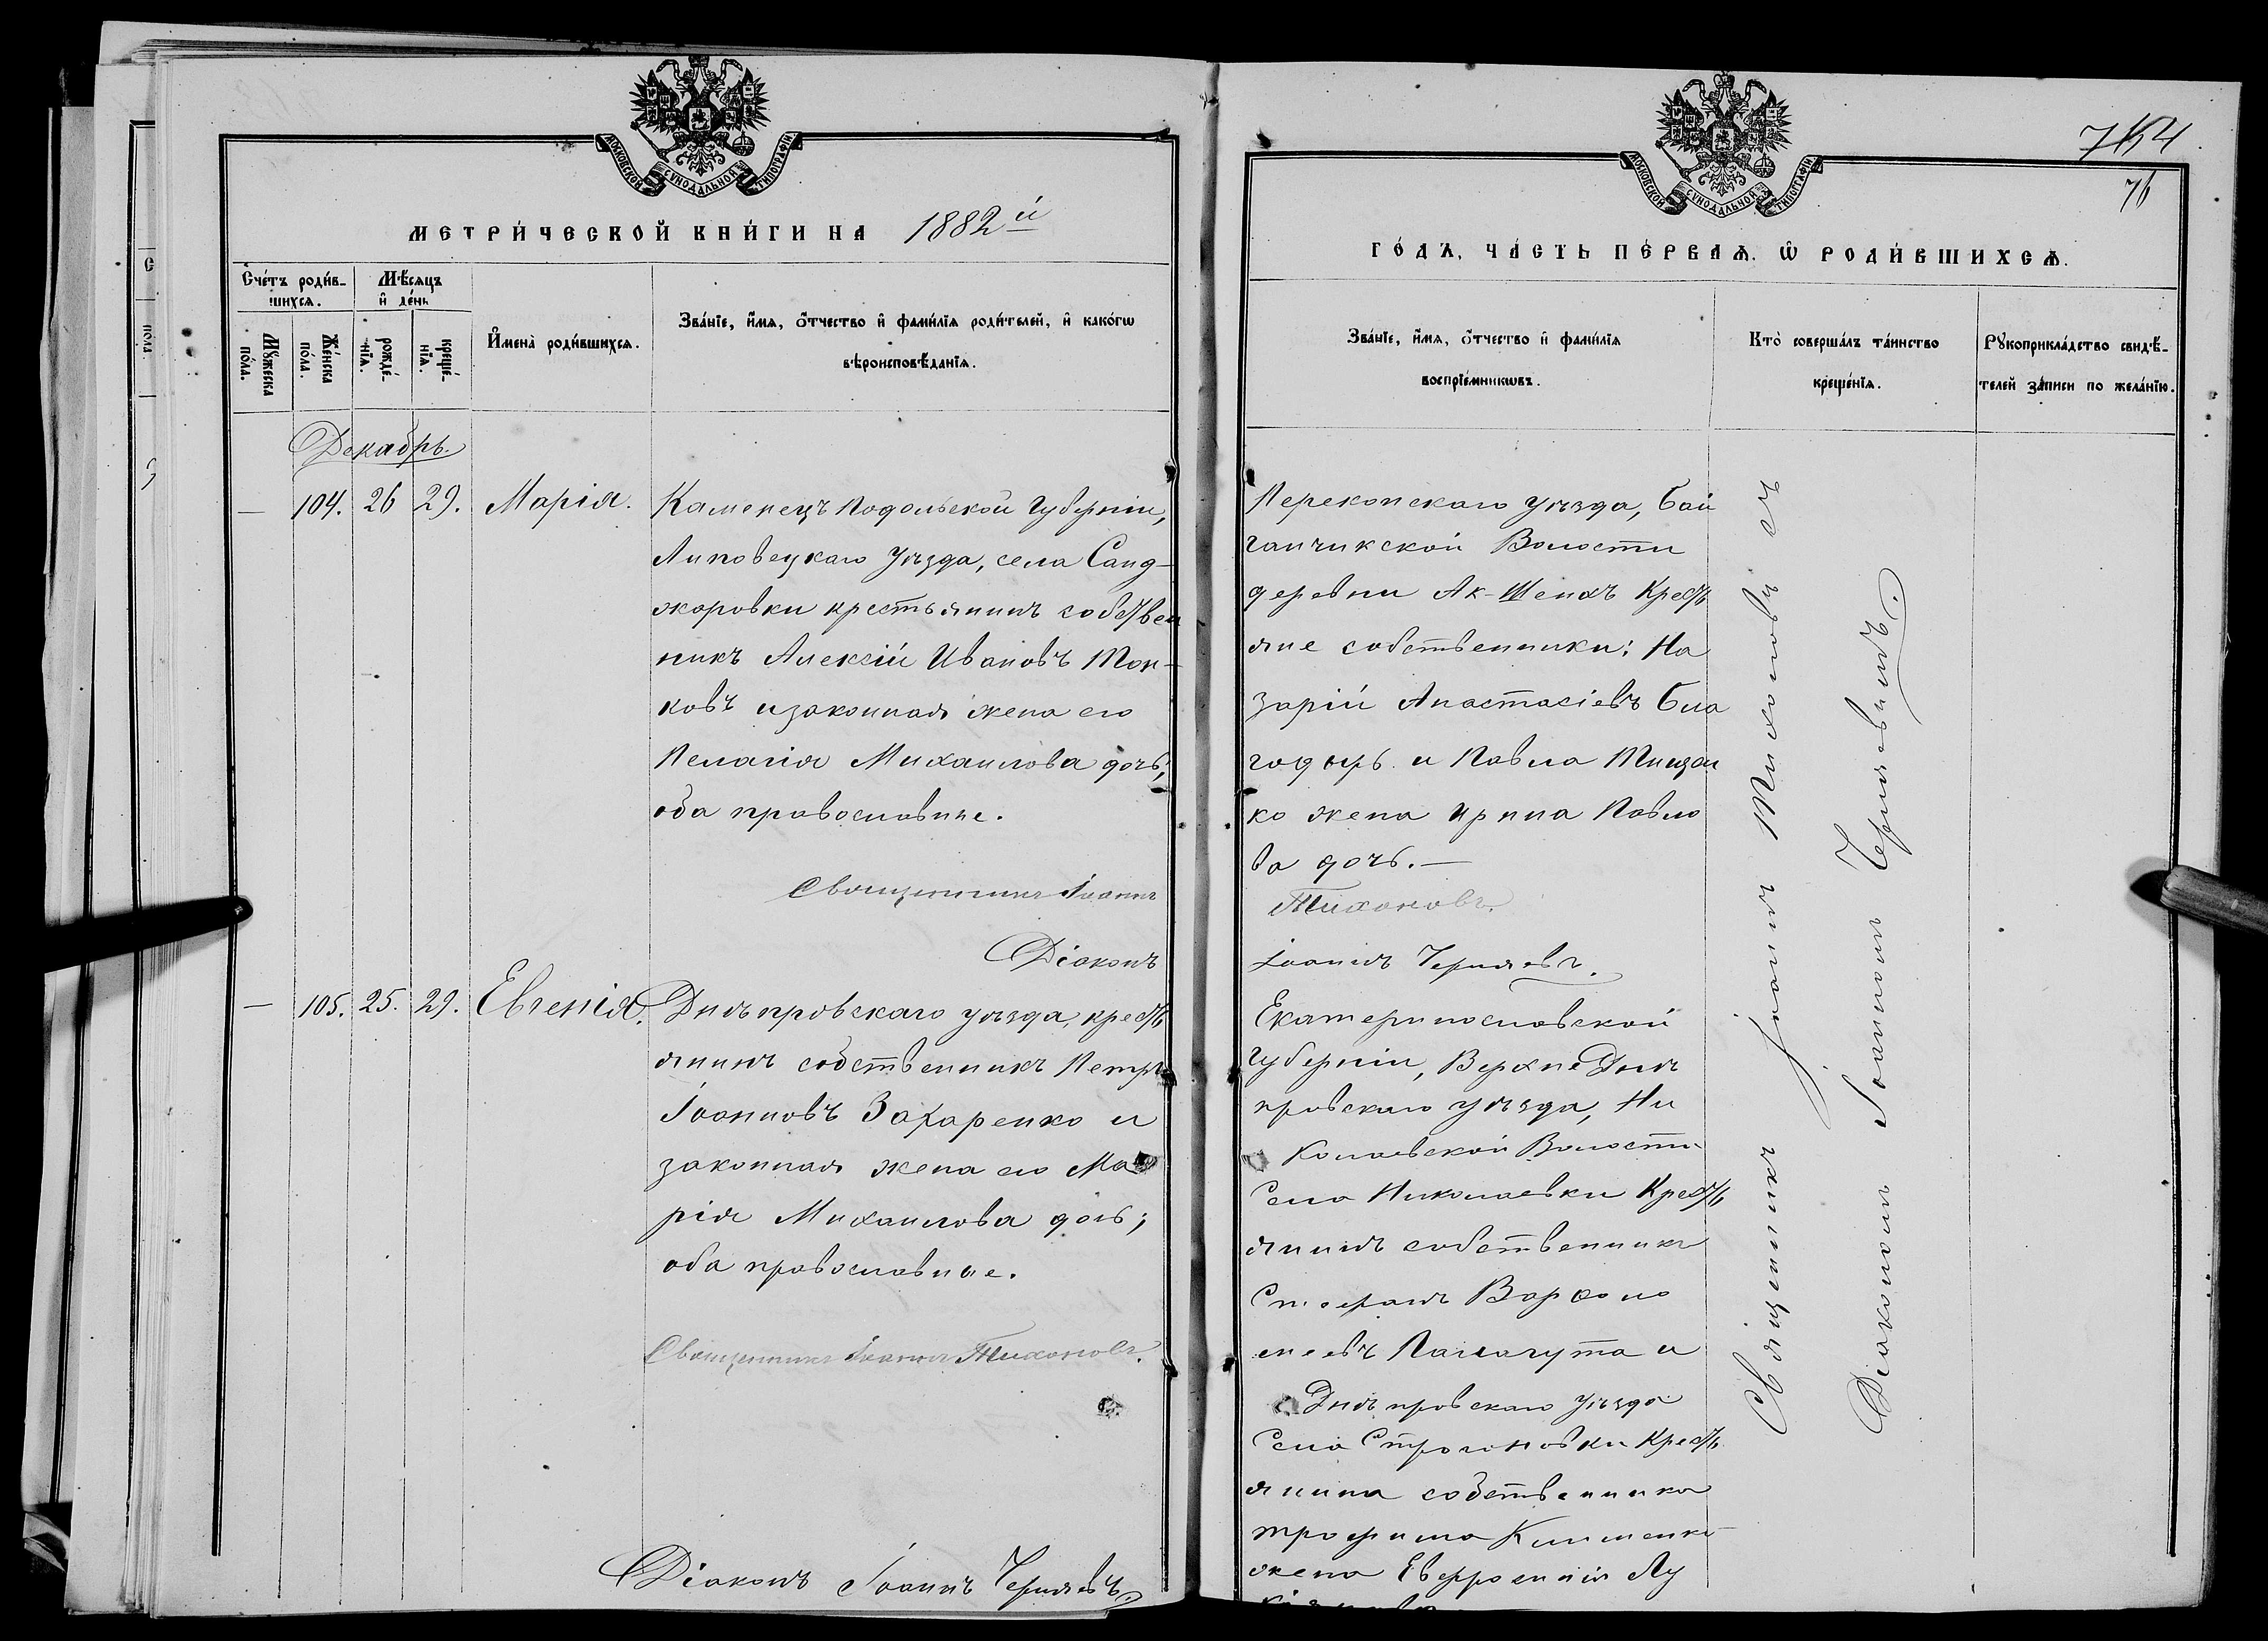 МОСКОВСКОЙ СѴНОДАЛЬНОЙ ТИПОГРАФІИ
МЕТРИ́ЧЕСКОЙ КНИ́ГИ НА 1882й
Сче́тъ роди́в-
шихсѧ.
Мѣсяцъ
и҆ де́нь
Мꙋ́жеска по́ла.
Же́нска по́ла.
рожде́-нїѧ.
креще́-нїѧ.
И҆мена̀ роди́вшихсѧ.
Зва́нїе, и҆́мѧ, ѻ҆́тчество и҆ фами́лїѧ роди́телей, и҆ како́гѡ
вѣроисповѣ́данїѧ.
Декабрь.
— 104. 26 29. Марія.
Каменецъ Подольской Губерніи,
Липовецкаго Уѣзда, села Санд-
жаровки крестьянинъ собствен
никъ Алексій Ивановъ Тон-
ковъ и законная жена его
Пелагія Михаилова дочь;
оба православные.
Священникъ Іоаннъ
Діаконъ
— 105. 25. 29. Евгенія.
Днѣпровскаго уѣзда, кресть
янинъ собственникъ Петръ
Іоанновъ Захаренко и
законная жена его Ма
рія Михаилова дочь;
оба православные.
Священникъ Іоаннъ Тихоновъ.
Діаконъ Іоаннъ Черняевъ.
МОСКОВСКОЙ СѴНОДАЛЬНОЙ ТИПОГРАФІИ
754
76
ГО́ДЪ, ЧА́СТЬ ПЕ́РВАѦ. Ѡ҆ РОДИ́ВШИХСѦ.
Зва́нїе, и҆́мѧ, ѻ҆́тчество и҆ фами́лїѧ
воспрїе́мникѡвъ.
Кто̀ соверша́лъ та́инство
креще́нїѧ.
Рꙋкоприкла́дство свидѣ́-
телей за́писи по жела́нїю.
Перекопскаго уѣзда, Бай
ганчикской Волости
деревни Ак-Шеихъ Кресть
яне собственники: На
зарій Анастасіевъ Бла
годырь и Павла
ко жена Ирина Павло
ва дочь.—
Тихоновъ.
Іоаннъ Черняевъ.
Екатеринославской
Губерніи, Верхнеднѣ
провскаго уѣзда, Ни
колаевской Волости
Села Николаевки Кресть
янинъ собственникъ
Стефанъ Варфоло
меевъ Палагута и
Днѣпровскаго уѣзда
Села Строгоновки Кресть
янина собственника
Трофима Клименко
жена Евфросинія Лу
Священникъ Іоаннъ Тихоновъ съ
Діакономъ Іоанномъ Черняевымъ.